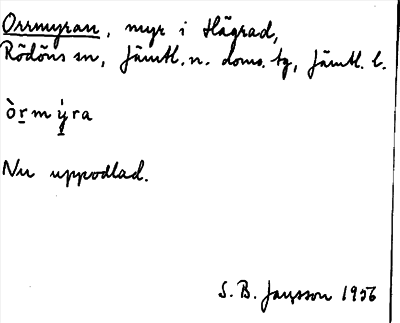 Orrmyran, myr i Hägrad,
Rödöns sn, Jämtl. n. doms. tg, Jämtl. l.
òr̲m ý̲ra
Nu uppodlad.
S. B. Jansson 1956